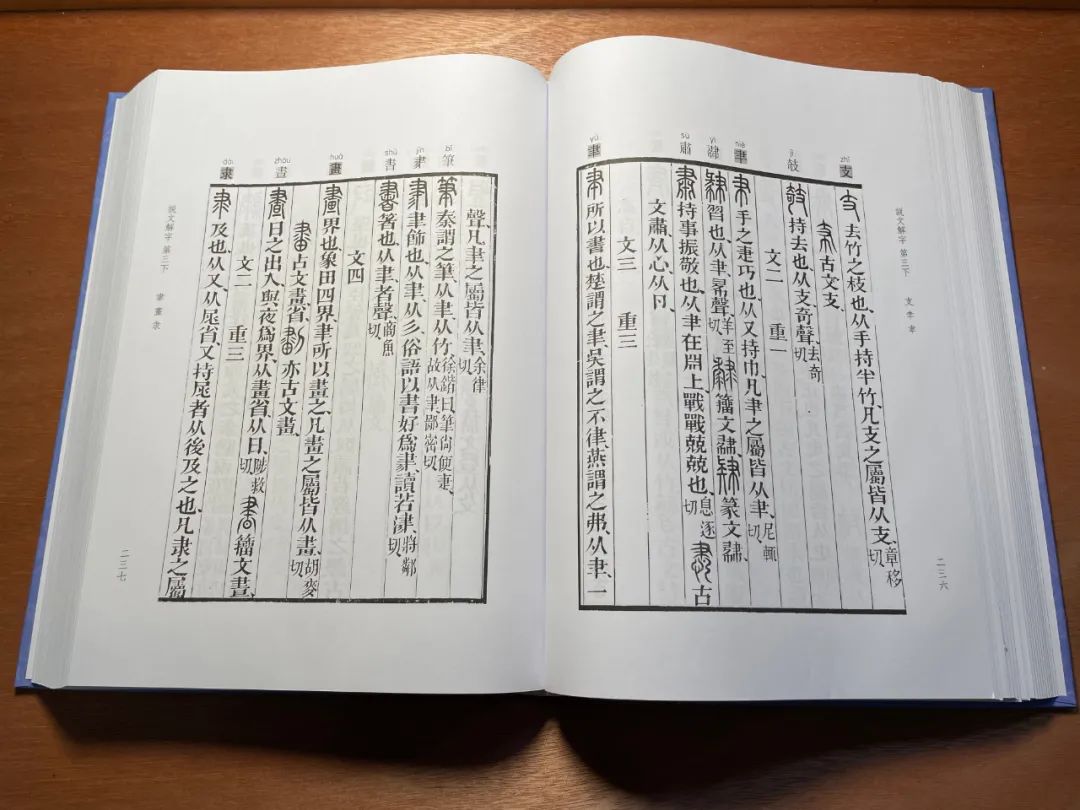 説文解字 第三下
支 𦘒 聿
二三六
zhī 支
支 去竹之枝也、从手持半竹、凡支之屬皆从支、章移切
古文支、
jī 攲
攲 持去也、从支奇聲、去奇切
文二 重一
niè 𦘒
𦘒 手之疌巧也、从又持巾、凡𦘒之屬皆从𦘒、尼輒切
yì 𦘡
習也、从𦘒㣇聲、羊至切 籀文𦘡、篆文𦘡、
sù 肅
肅 持事振敬也、从𦘒在𣶒上、戰戰兢兢也、息逐切 古
文肅、从心从卪、
文三 重三
yù 聿
聿 所以書也、楚謂之聿、吳謂之不律、燕謂之弗、从𦘒、一
聲、凡聿之屬皆从聿、余律切
bǐ 筆
筆 秦謂之筆、从聿从竹、徐鍇曰筆尚便疌、故从聿、鄙密切
jīn 𦘔
𦘔 聿飾也、从聿从彡、俗語以書好爲𦘔、讀若津、將鄰切
shū 書
書 箸也、从聿、者聲、商魚切
文四
huà 畫
畫 界也、象田四界、聿所以畫之、凡畫之屬皆从畫、胡麥切
古文畫省、亦古文畫、
zhòu 晝
晝 日之出入、與夜爲界、从畫省、从日、陟救切 籀文晝、
文二 重三
dài 隶
隶 及也、从又从尾省、又持尾者、从後及之也、凡隶之屬
説文解字 第三下
聿 畫 隶
二三七